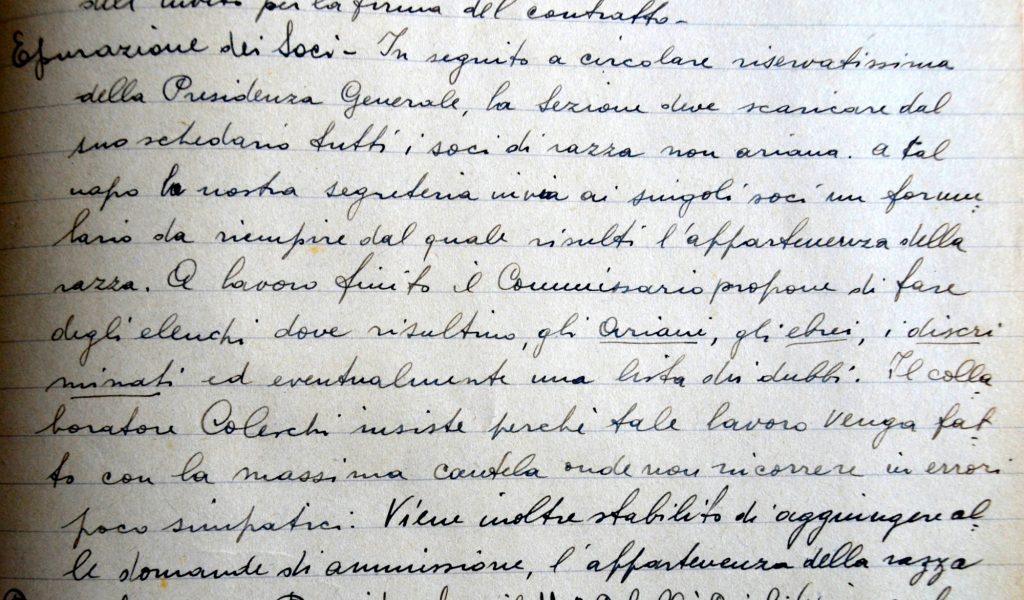 dell'invito per la firma del contratto-
Epurazione dei Soci- In seguito a circolare riservatissima
della Presidenza Generale, la Sezione deve scaricare dal
suo schedario tutti i soci di razza non ariana. A tal
uopo la nostra segreteria invia ai singoli soci un formu-
lario da riempire dal quale risulti l'appartenenza della
razza. A lavoro finito il Commissario propone di fare
degli elenchi dove risultino, gli Ariani, gli ebrei, i discri
minati ed eventualmente una lista dei dubbi. Il colla
boratore Coleschi insiste perchè tale lavoro venga fat
to con la massima cautela onde non incorrere in errori
poco simpatici. Viene inoltre stabilito di aggiungere al-
le domande di ammissione, l'appartenenza della razza